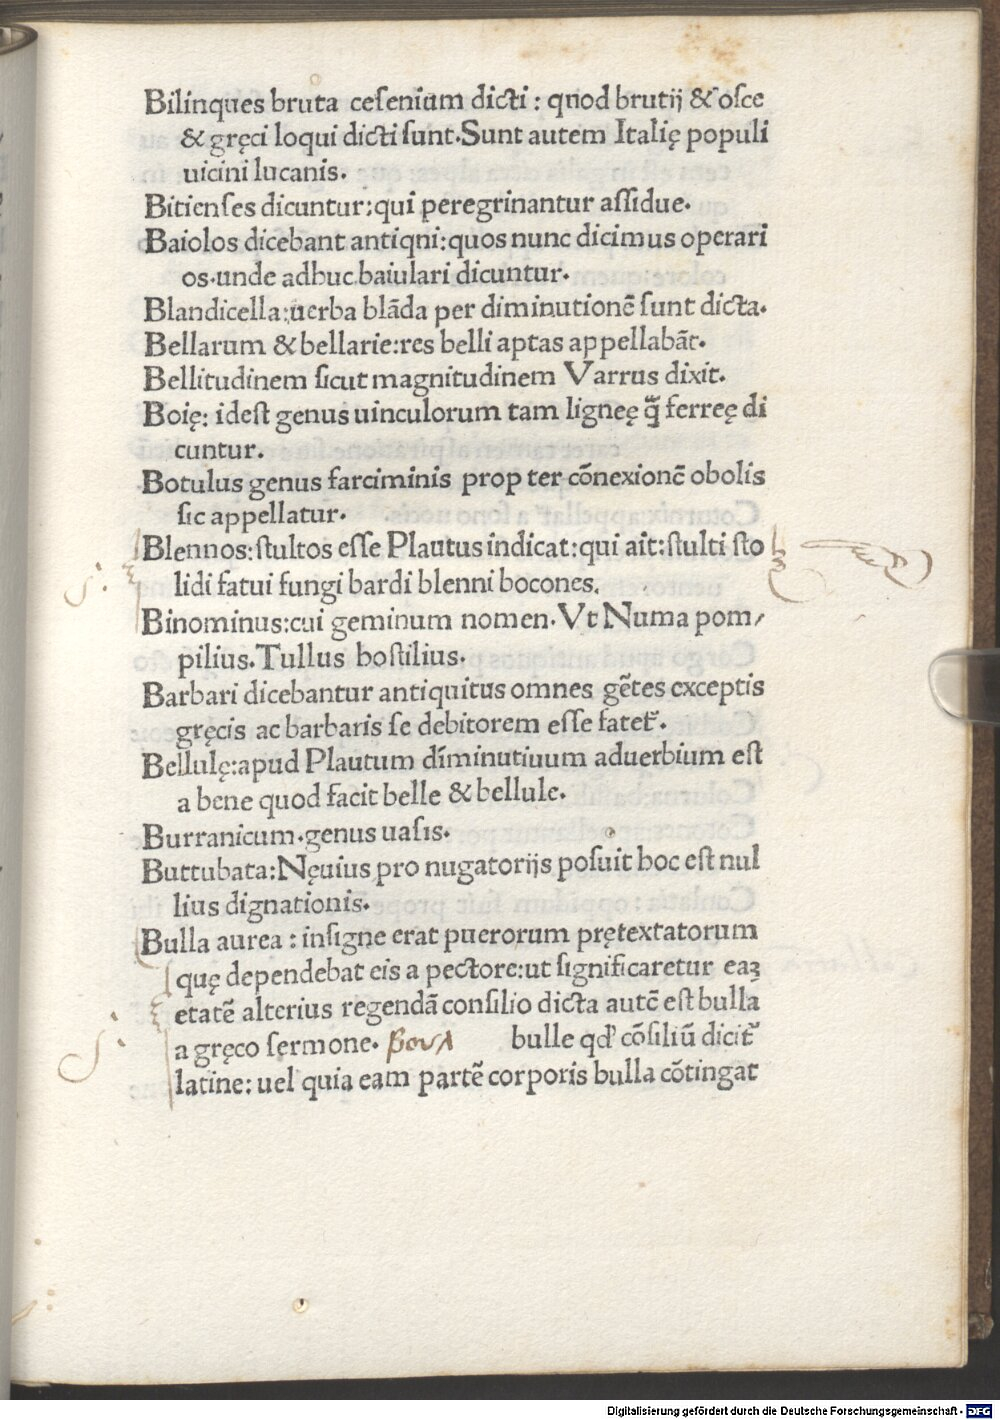 Bilinques bruta cesenium dicti : quod brutij & osce
& gręci loqui dicti sunt. Sunt autem Italię populi
uicini lucanis.
Bitienses dicuntur: qui peregrinantur assidue.
Baiolos dicebant antiqui: quos nunc dicimus operari
os. unde adhuc baiulari dicuntur.
Blandicella: uerba blāda per diminutionē sunt dicta.
Bellarum & bellarie: res belli aptas appellabāt.
Bellitudinem sicut magnitudinem Varrus dixit.
Boię: idest genus uinculorum tam ligneę q̄ ferreę di
cuntur.
Botulus genus farciminis prop ter cōnexionē obolis
sic appellatur.
Blennos: stultos esse Plautus indicat: qui ait: stulti sto
lidi fatui fungi bardi blenni bocones.
Binominus: cui geminum nomen. Vt Numa pom/
pilius. Tullus hostilius.
Barbari dicebantur antiquitus omnes gētes exceptis
gręcis ac barbaris se debitorem esse fatet᷑.
Bellulę: apud Plautum diminutiuum aduerbium est
a bene quod facit belle & bellule.
Burranicum. genus uasis.
Buttubata: Nęuius pro nugatorijs posuit hoc est nul
lius dignationis.
Bulla aurea : insigne erat puerorum prętextatorum
quę dependebat eis a pectore: ut significaretur eaꝝ
etatē alterius regendā consilio dicta autē est bulla
a gręco sermone. βουλ bulle qd' cōsiliū dicit᷑
latine: uel quia eam partē corporis bulla cōtingat
Digitalisierung gefördert durch die Deutsche Forschungsgemeinschaft - DFG